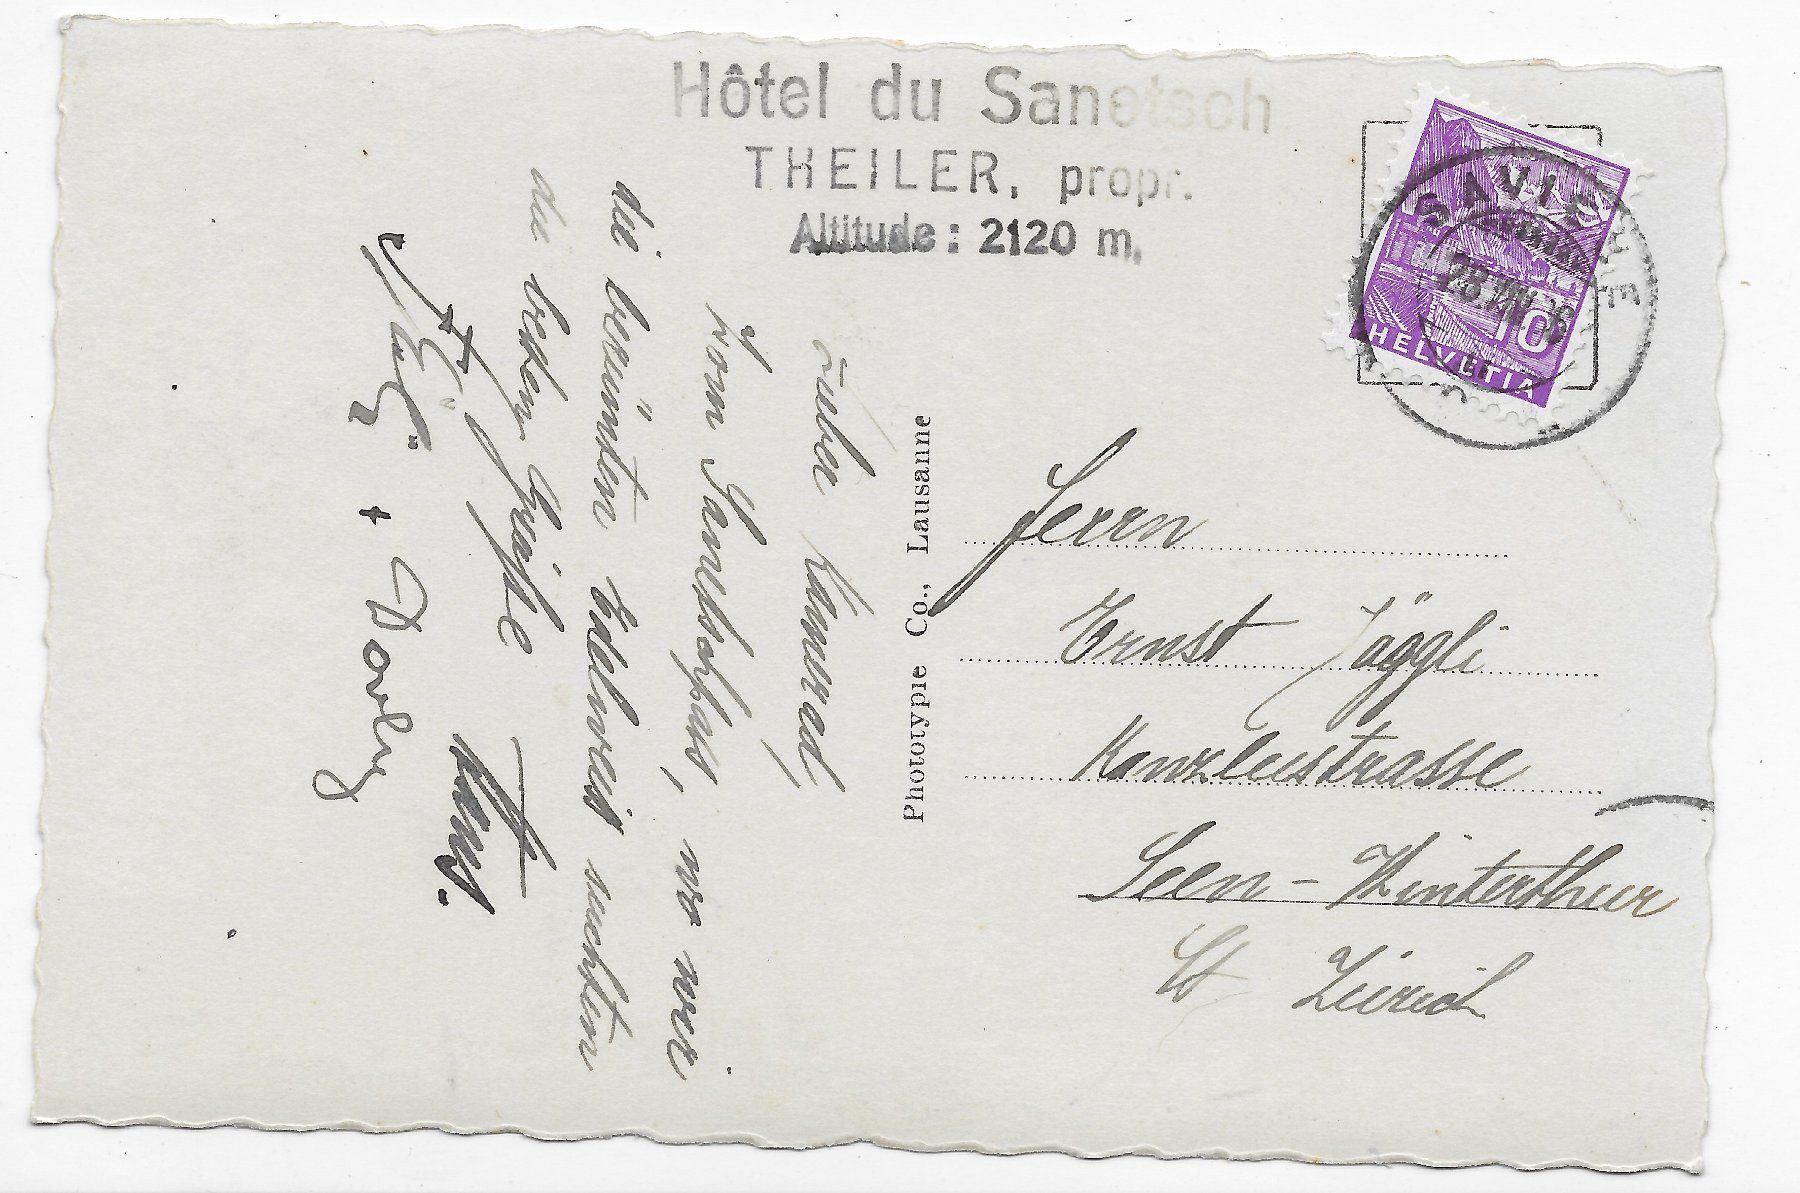 Hôtel du Sanetsch
THEILER, propr.
Altitude: 2120 m.
SAVIÈSE
28.VIII.36
10
HELVETIA
Lieber Kamerad,
Vom Sanetschpass, wo wir
die berümten Edelweiss suchten
die besten Grüsse
Hans.
+ Dory
Phototypie Co., Lausanne
Herrn
Ernst Jäggli
Kanzleistrasse
Seen - Winterthur
Kt Zürich